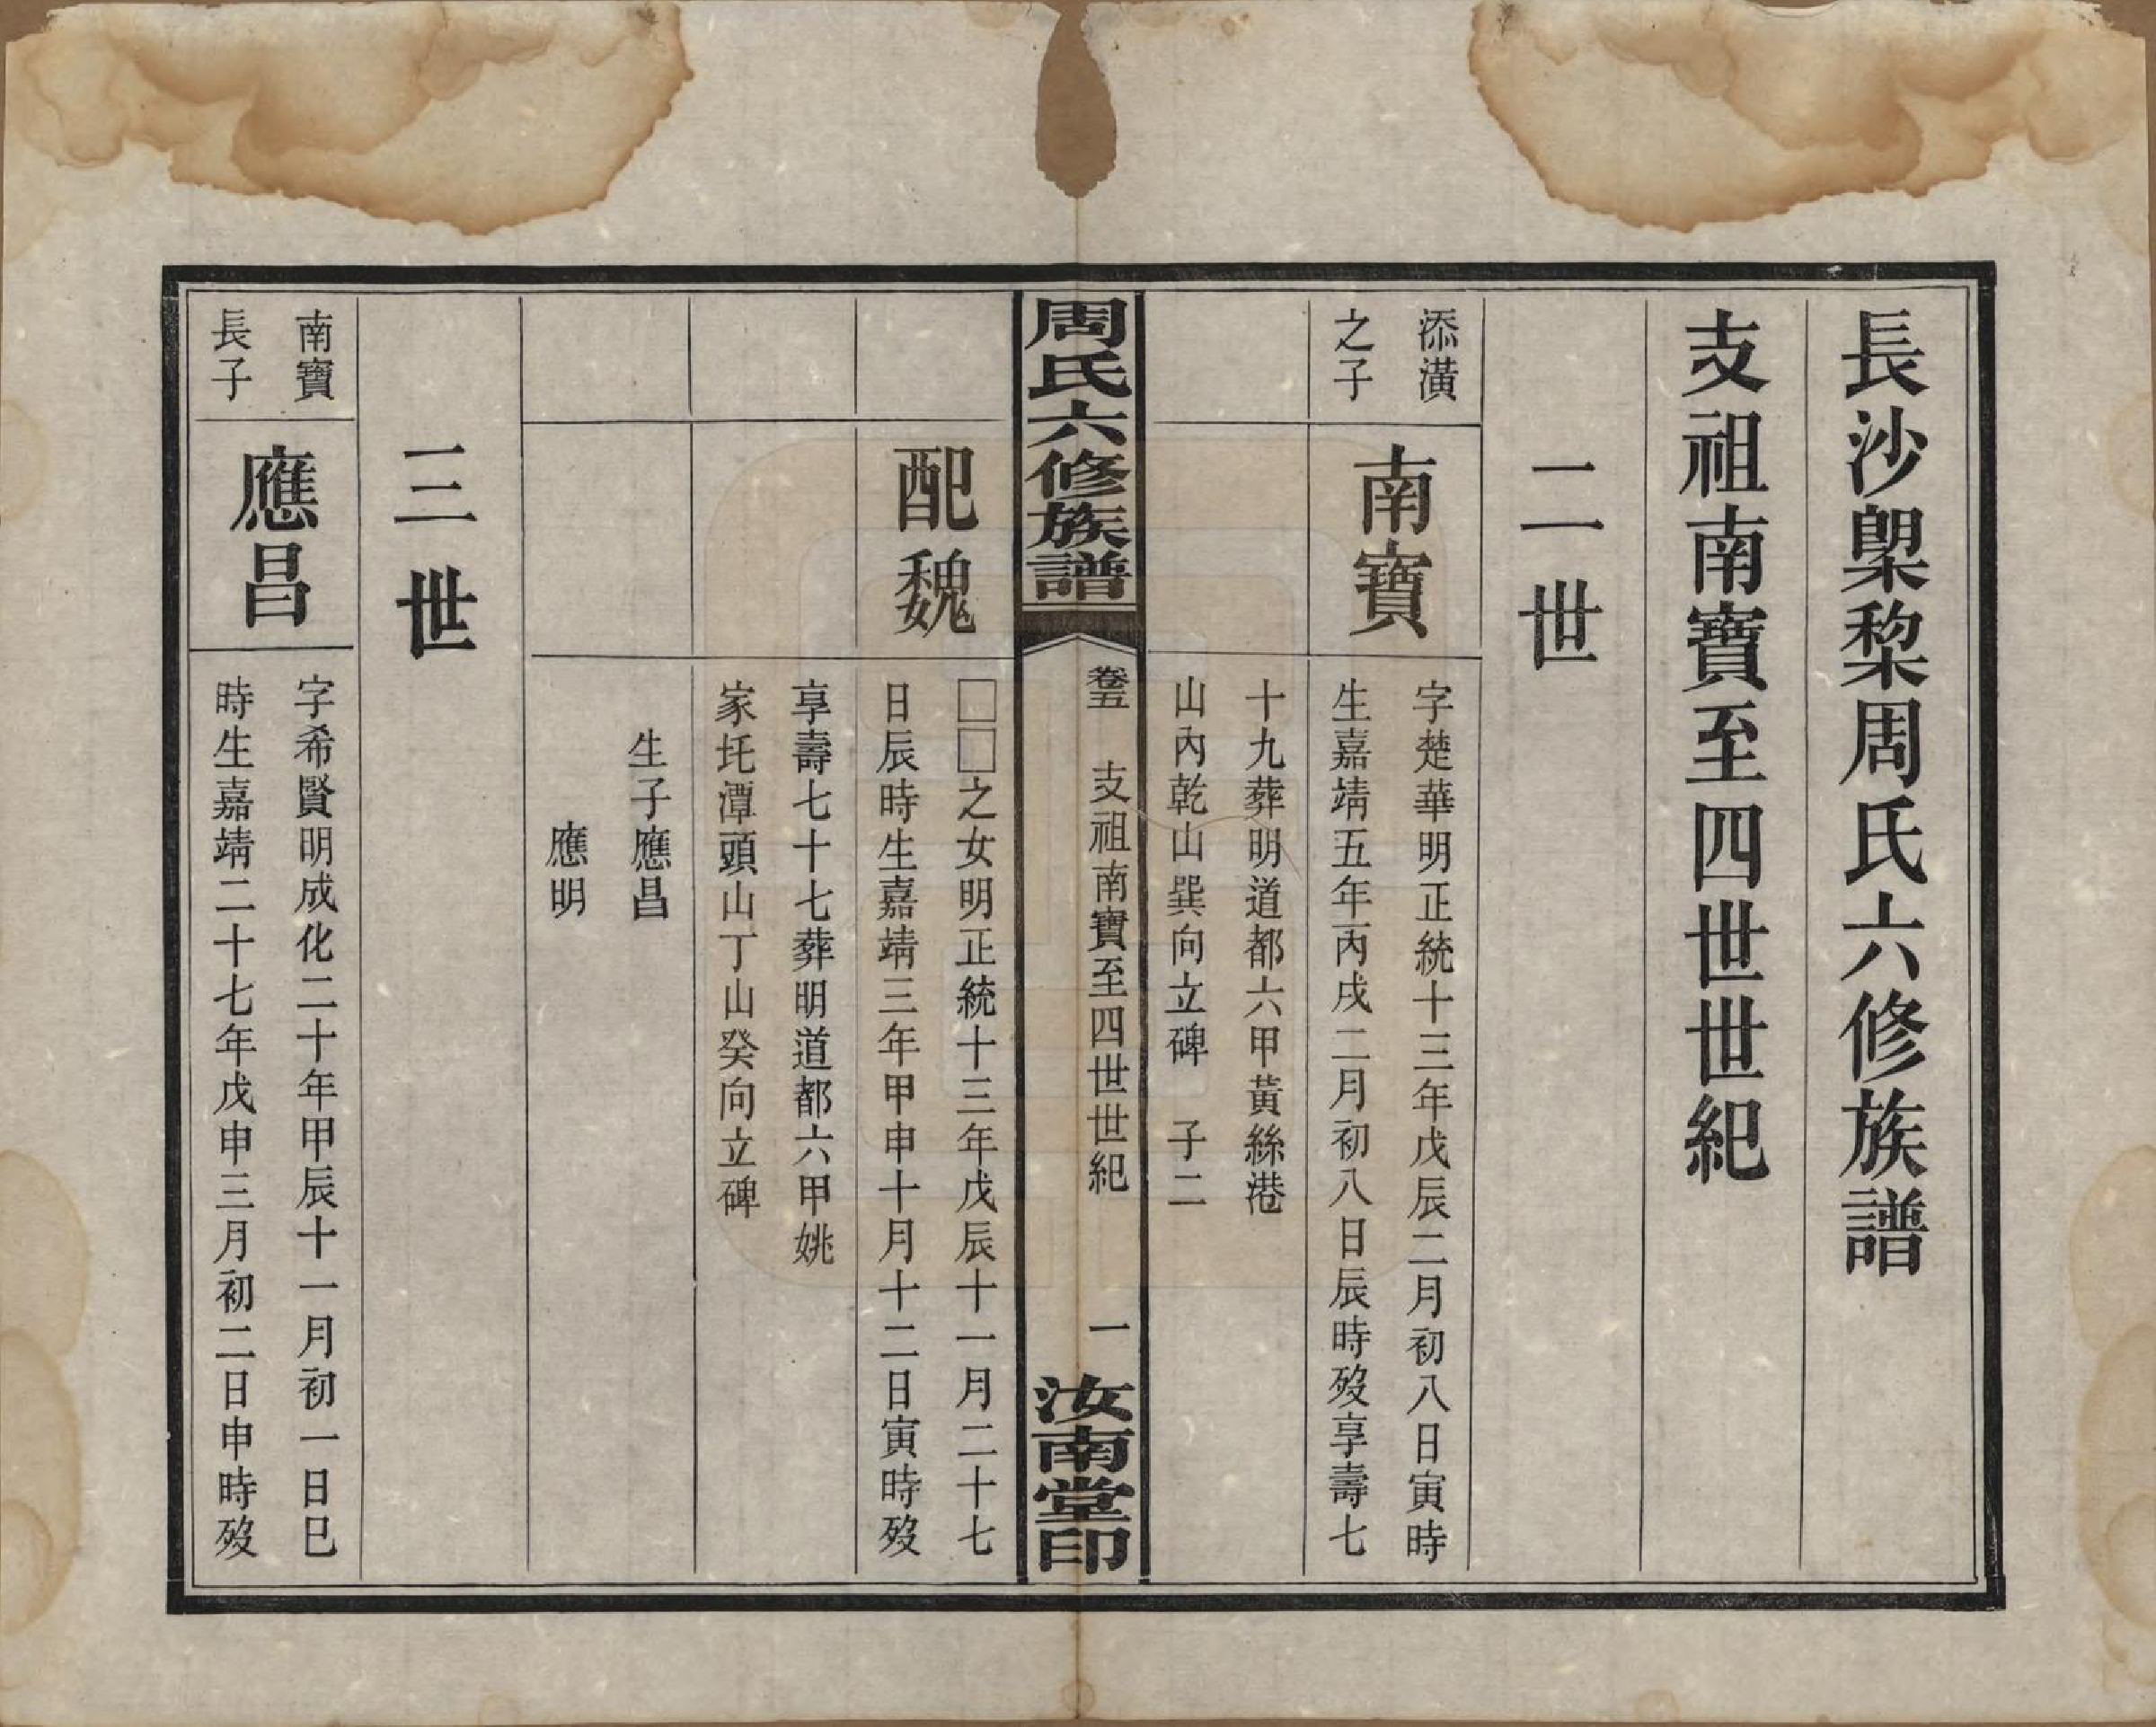 長沙㮚棃周氏六修族譜
支祖南寶至四世世紀
二世
添潢
之子
南寶
字楚華明正統十三年戊辰二月初八日寅時
生嘉靖五年丙戌二月初八日辰時歿享壽七
十九葬明道都六甲黃絲港
山內乾山巽向立碑　子二
周氏六修族譜
卷五　支祖南寶至四世世紀　一
汝南堂印
配魏
□□之女明正統十三年戊辰十一月二十七
日辰時生嘉靖三年甲申十月十二日寅時歿
享壽七十七葬明道都六甲姚
家圫潭頭山丁山癸向立碑
生子應昌
應明
三世
南寶
長子
應昌
字希賢明成化二十年甲辰十一月初一日巳
時生嘉靖二十七年戊申三月初二日申時歿